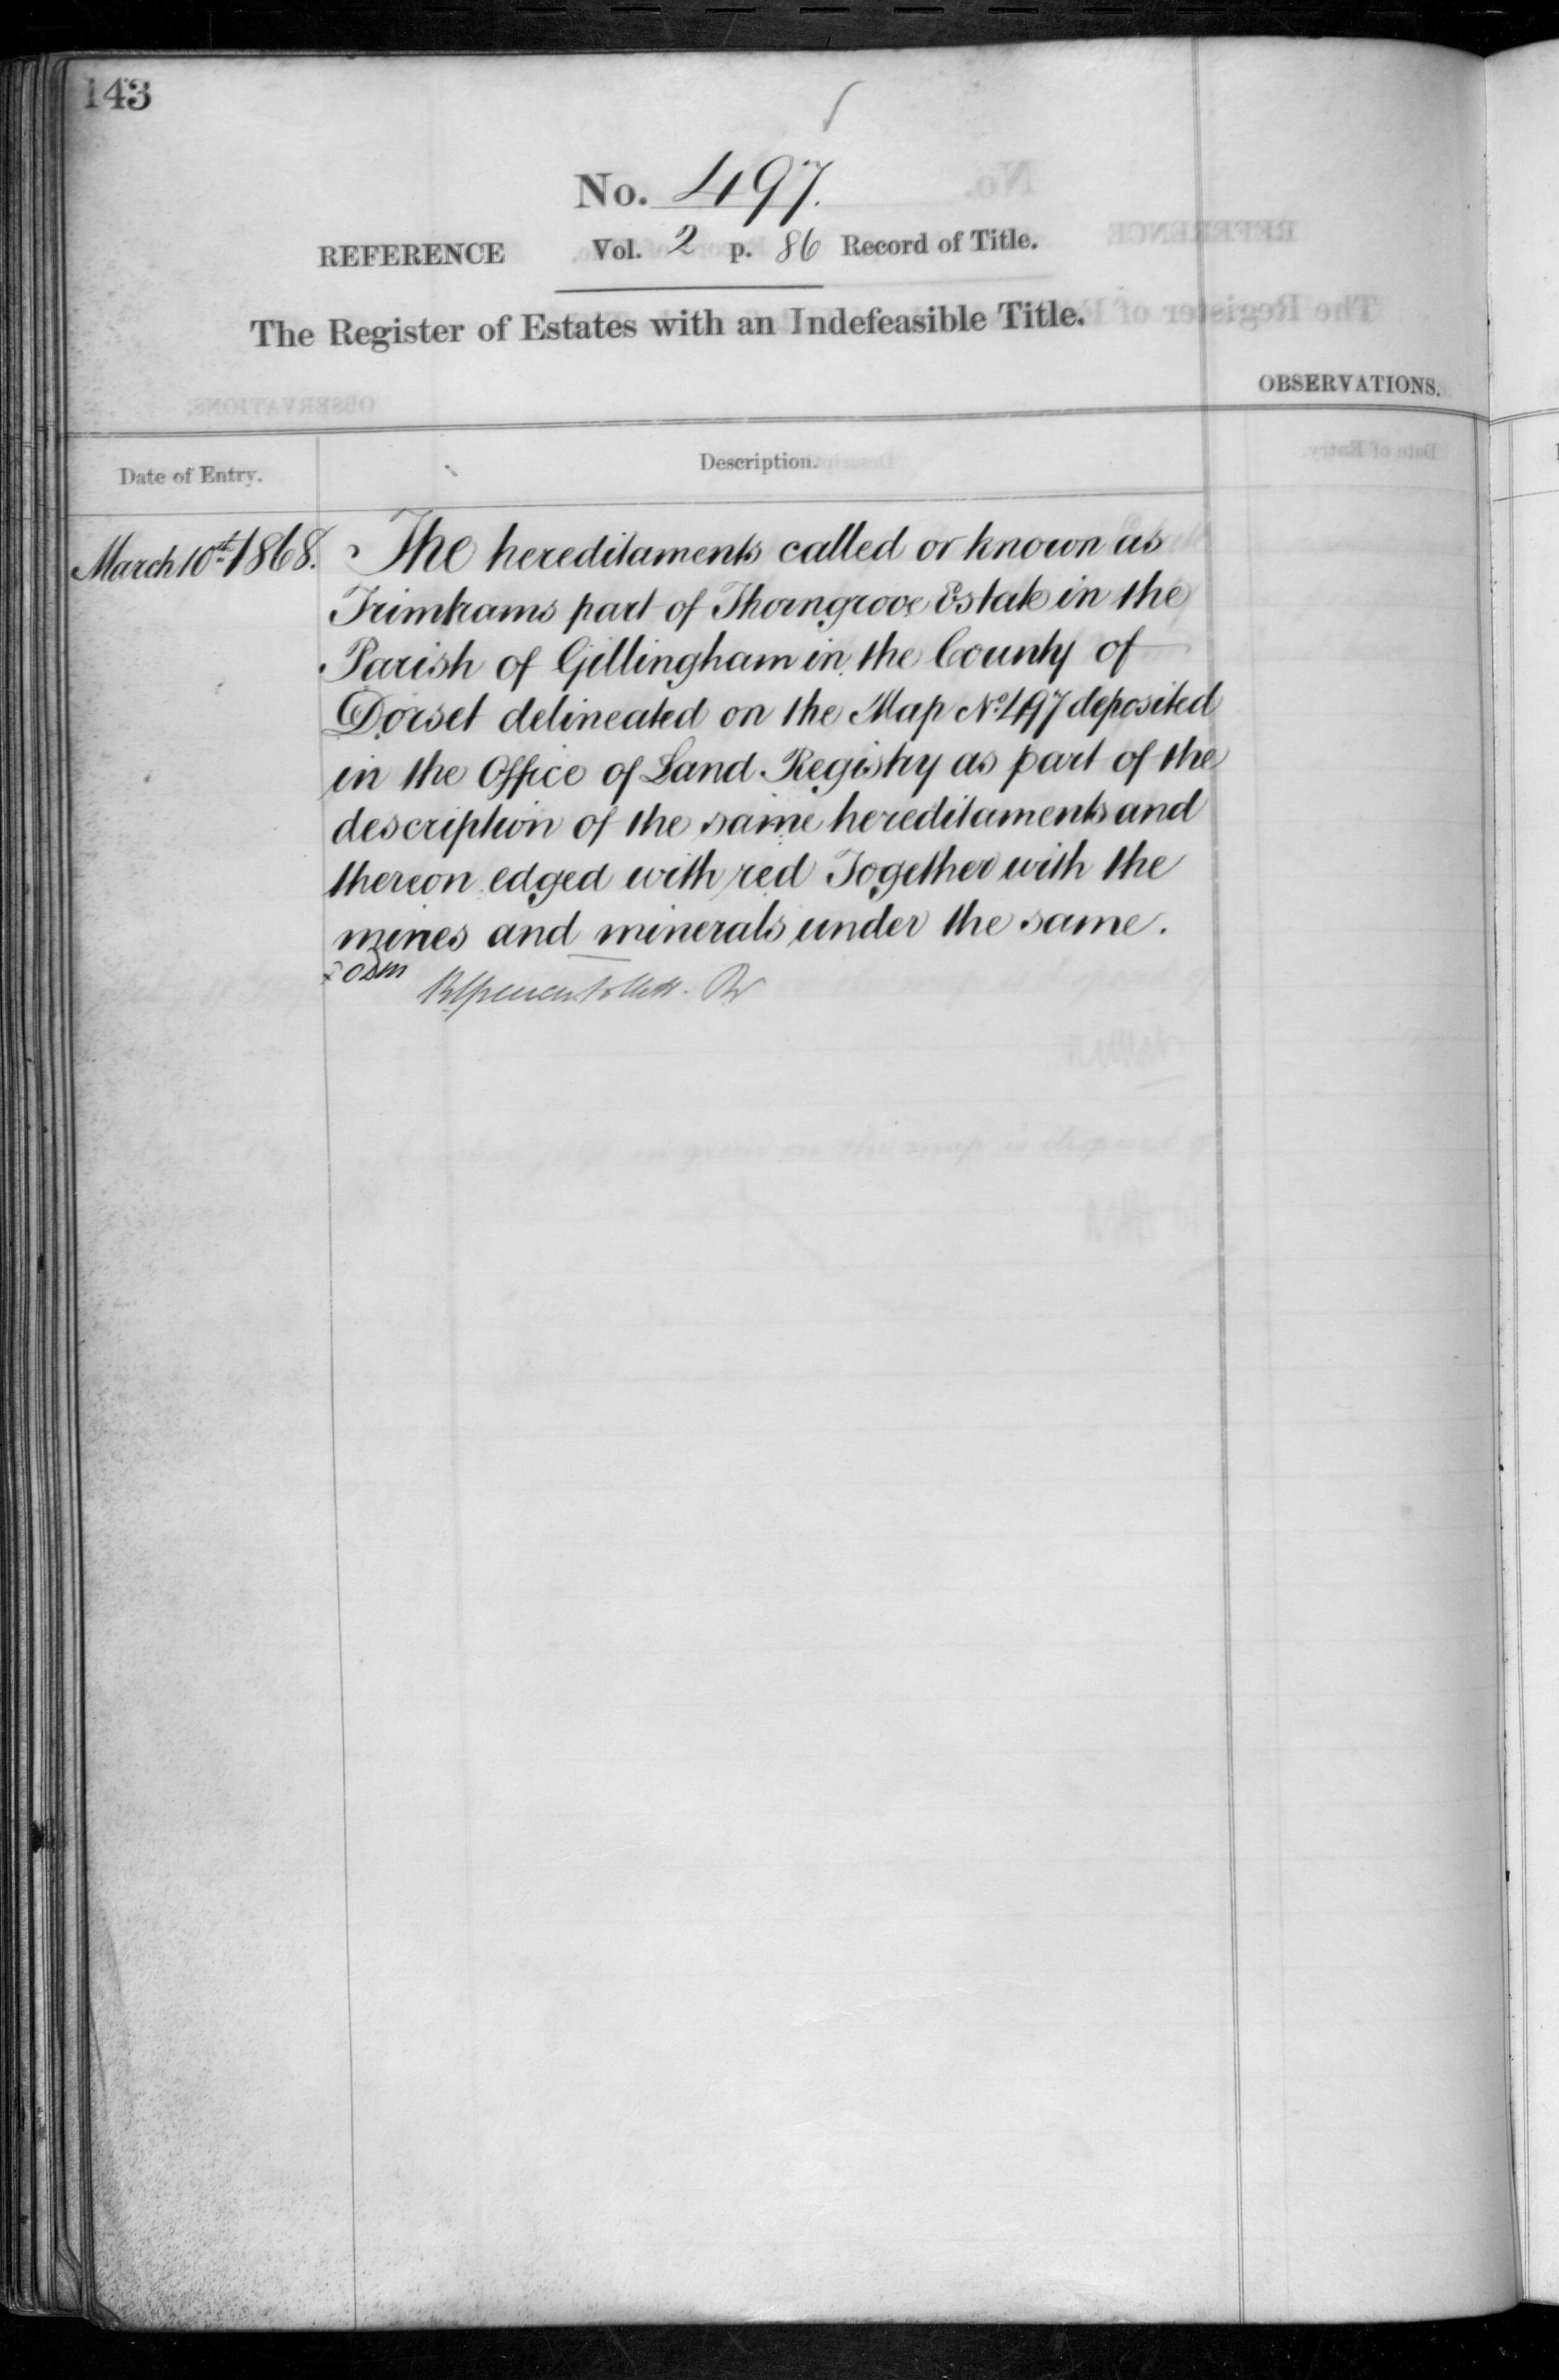 143
No. 497.
REFERENCE Vol. 2 p. 86 Record of Title.
The Register of Estates with an Indefeasible Title.
OBSERVATIONS.
Date of Entry. Description.
March 10th 1868. The hereditaments called or known as
Trimhams part of Thorngrove Estate in the
Parish of Gillingham in the County of
Dorset delineated on the Map No. 497 deposited
in the Office of Land Registry as part of the
description of the same hereditaments and
thereon edged with red Together with the
mines and minerals under the same.